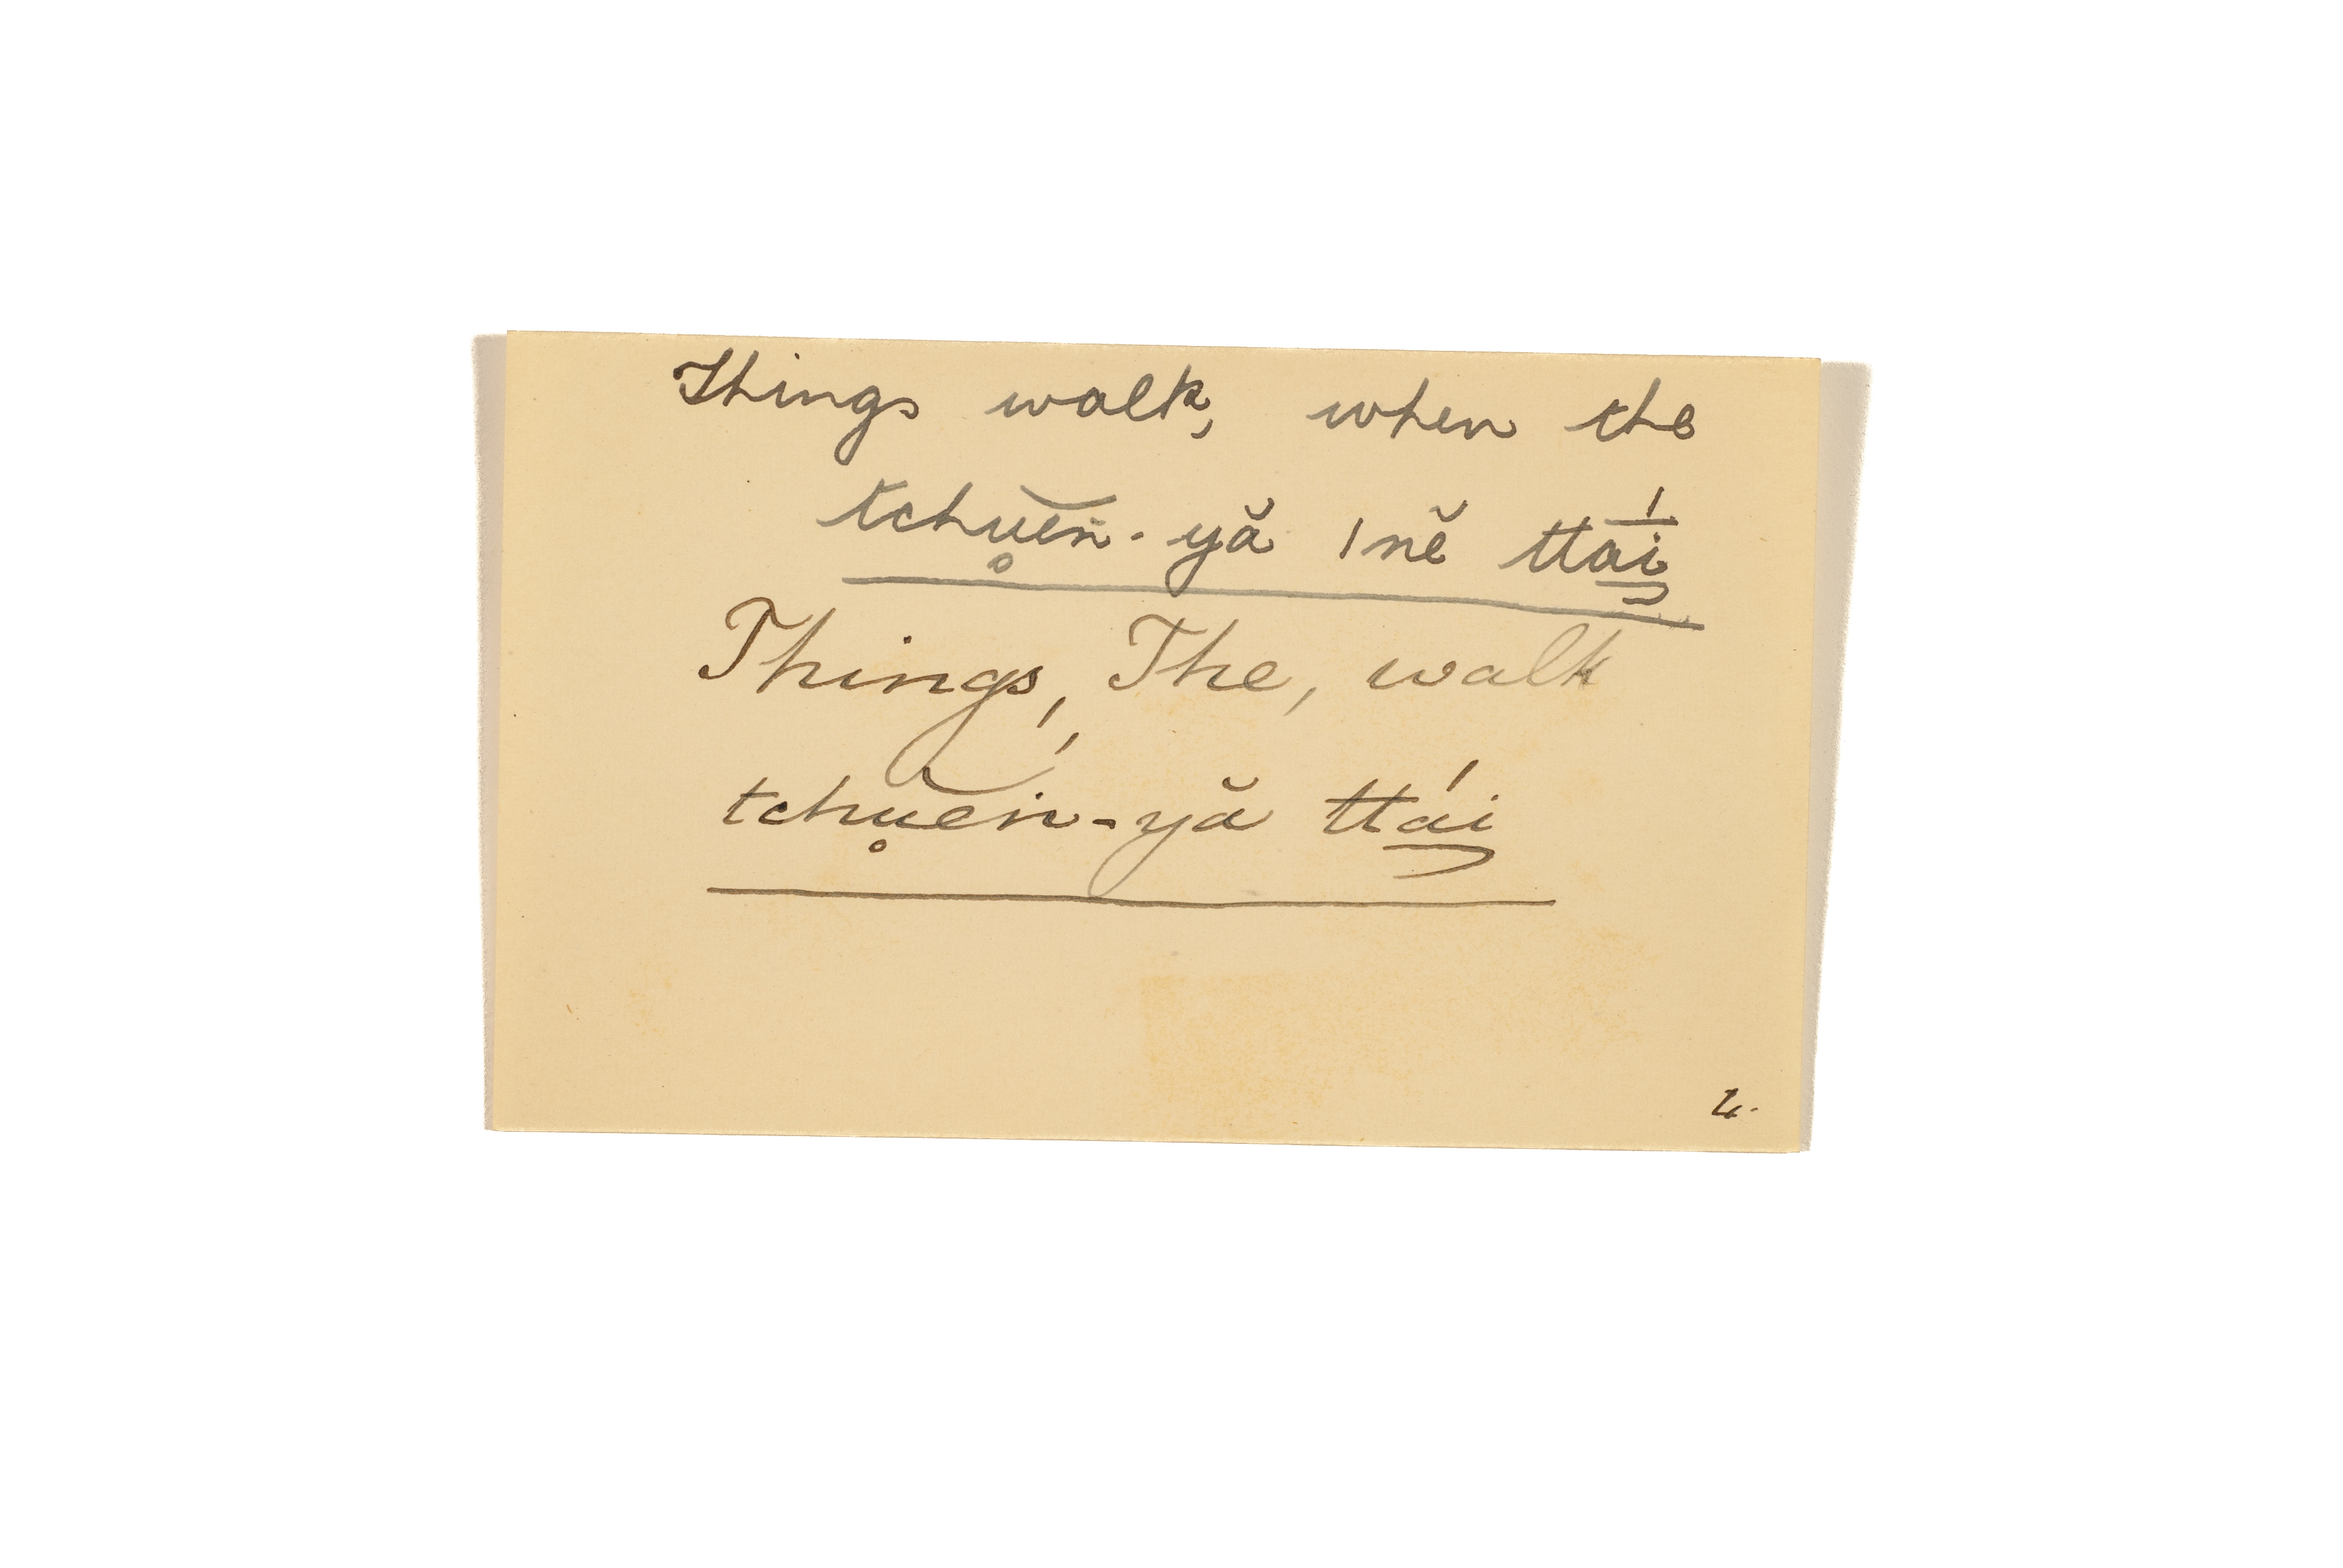 Things walk, when the
tchu̥ĕn̈-yă 'nĕ ttái
Things, The, walk
tchu̥ĕ́n-yă ttái